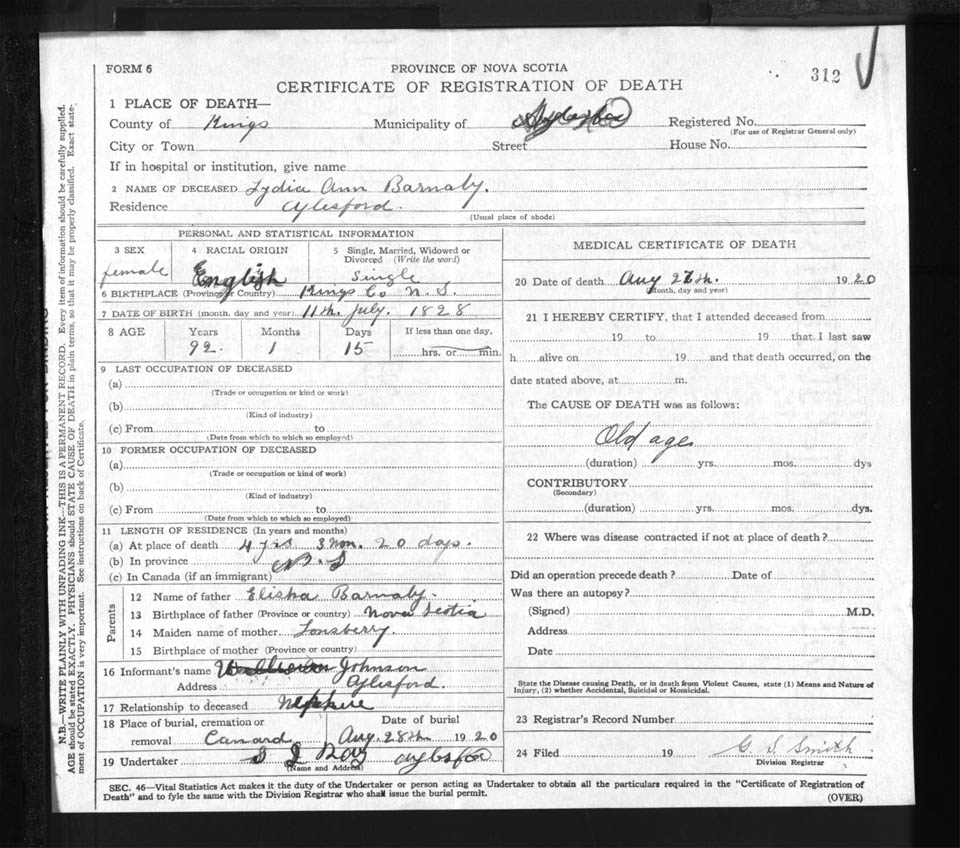 FORM 6
PROVINCE OF NOVA SCOTIA
312
CERTIFICATE OF REGISTRATION OF DEATH
1 PLACE OF DEATH—
County of Kings Municipality of Aylesford Registered No.
(For use of Registrar General only)
City or Town Street House No.
If in hospital or institution, give name
2 NAME OF DECEASED Lydia Ann Barnaby.
Residence Aylesford.
(Usual place of abode)
PERSONAL AND STATISTICAL INFORMATION
3 SEX
female
4 RACIAL ORIGIN
English
5 Single, Married, Widowed or Divorced (Write the word)
Single
6 BIRTHPLACE (Province or Country) Kings Co N. S.
7 DATE OF BIRTH (month, day and year) 11th July. 1828
8 AGE Years Months Days If less than one day,
92. 1 15 hrs. or min.
9 LAST OCCUPATION OF DECEASED
(a)
(Trade or occupation or kind or work)
(b)
(Kind of industry)
(c) From to
(Date from which to which so employed)
10 FORMER OCCUPATION OF DECEASED
(a)
(Trade or occupation or kind of work)
(b)
(Kind of industry)
(c) From to
(Date from which to which so employed)
11 LENGTH OF RESIDENCE (In years and months)
(a) At place of death 4 yrs 3 mon. 20 days.
(b) In province N. S
(c) In Canada (if an immigrant)
Parents
12 Name of father Elisha Barnaby.
13 Birthplace of father (Province or country) Nova Scotia
14 Maiden name of mother Lonsberry.
15 Birthplace of mother (Province or country)
16 Informant's name Johnson
Address Aylesford.
17 Relationship to deceased
18 Place of burial, cremation or removal Canard
Date of burial Aug. 28th 1920
19 Undertaker S Aylesford
(Name and Address)
MEDICAL CERTIFICATE OF DEATH
20 Date of death Aug 26th. 1920
(Month, day and year)
21 I HEREBY CERTIFY, that I attended deceased from
19 to 19 that I last saw
h alive on 19 and that death occurred, on the
date stated above, at m.
The CAUSE OF DEATH was as follows:
Old age
(duration) yrs. mos. dys
CONTRIBUTORY
(Secondary)
(duration) yrs. mos. dys.
22 Where was disease contracted if not at place of death?
Did an operation precede death? Date of
Was there an autopsy?
(Signed) M.D.
Address
Date
State the Disease causing Death, or in death from Violent Causes, state (1) Means and Nature of
Injury, (2) whether Accidental, Suicidal or Homicidal.
23 Registrar's Record Number
24 Filed 19 G. S. Smith.
Division Registrar
SEC. 46—Vital Statistics Act makes it the duty of the Undertaker or person acting as Undertaker to obtain all the particulars required in the "Certificate of Registration of
Death" and to fyle the same with the Division Registrar who shall issue the burial permit.
(OVER)
N.B.—WRITE PLAINLY WITH UNFADING INK—THIS IS A PERMANENT RECORD. Every item of information should be carefully supplied.
AGE should be stated EXACTLY. PHYSICIANS should STATE CAUSE OF DEATH in plain terms, so that it may be properly classified. Exact state-
ment of OCCUPATION is very important. See instructions on back of Certificate.